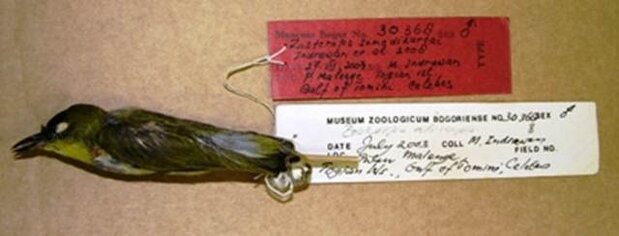 Museum Bogor No. 30368 SEX ♂
Zosterops somadikartai
Indrawan et al 2008
TYPE
27.VII.2003 M. Indrawan
P. Malenge Togian Isl.
Gulf of Tomini Celebes
MUSEUM ZOOLOGICUM BOGORIENSE NO. 30368 SEX ♂
DATE July 2003 COLL M. Indrawan
LOC. Pulau Malenge FIELD NO.
Togian Is., Gulf of Tomini, Celebes